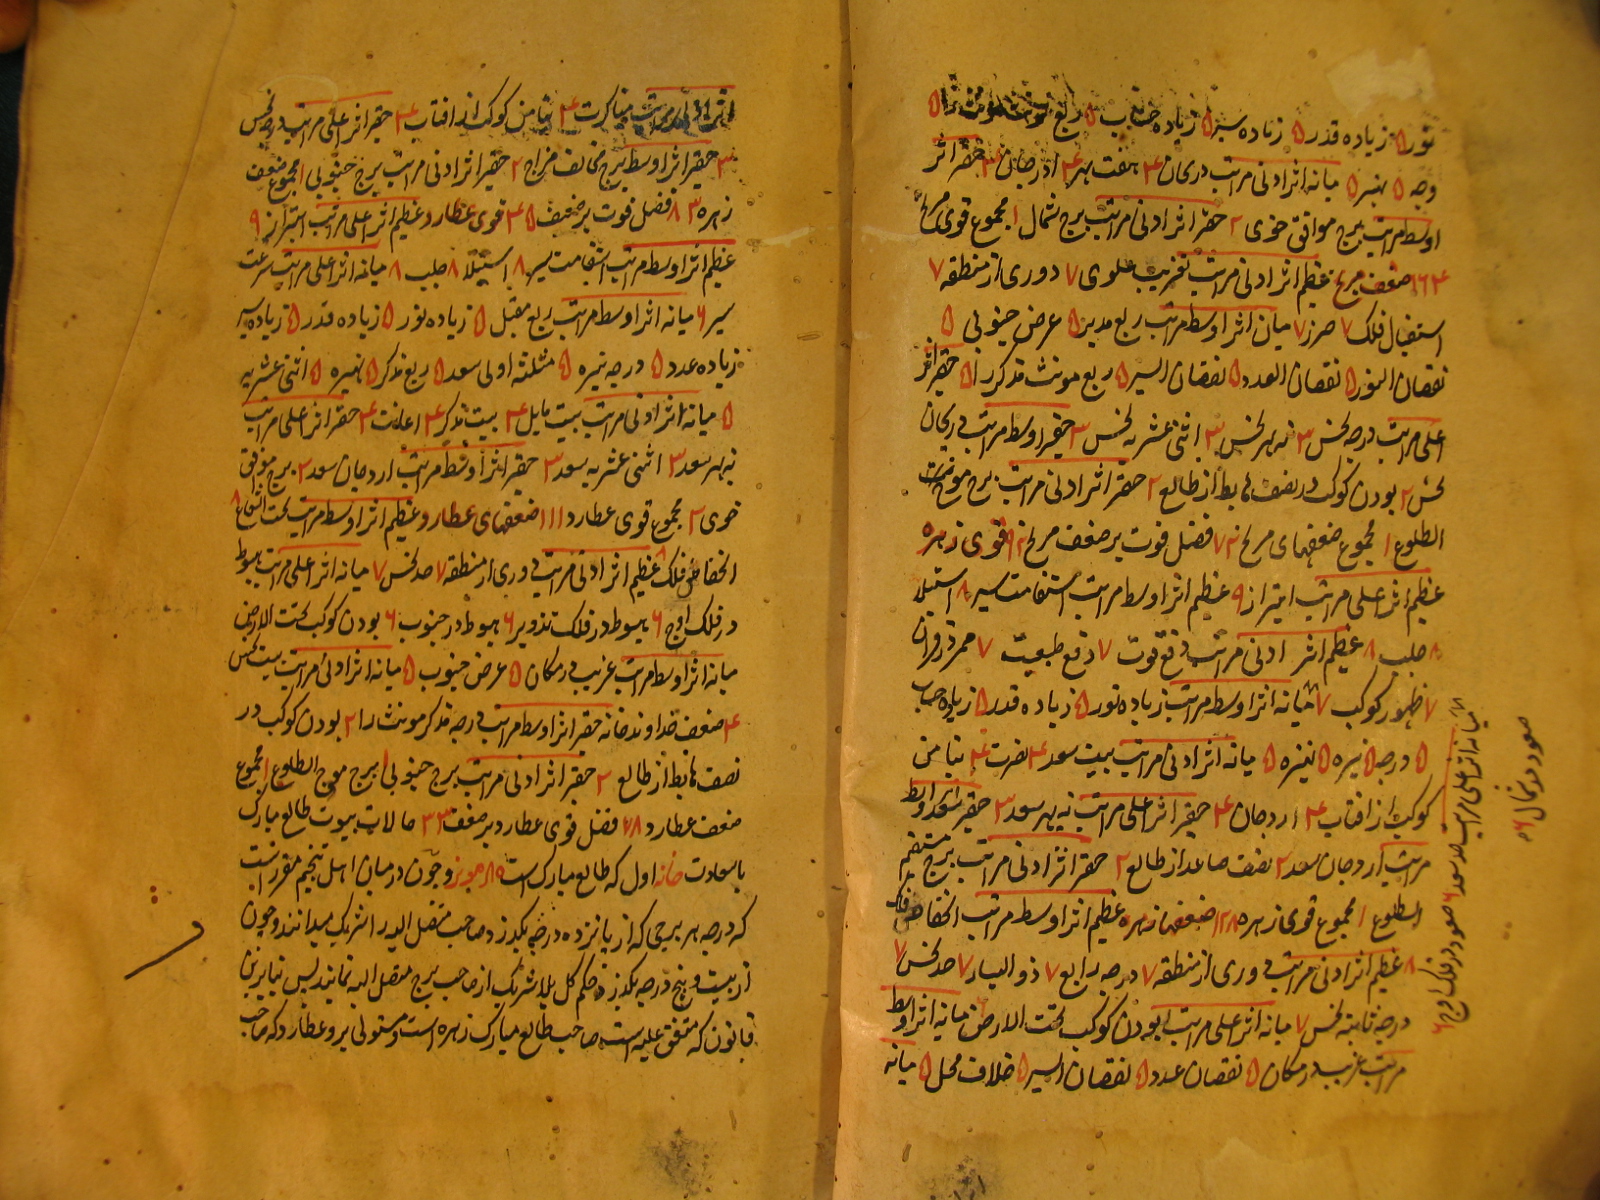 نور ۵ زیاده قدر ۵ زیاده سیر ۵ زیاده حساب ۵ ربع
وجه ۵ نیره ۵ میانه اثر ادنی مراتب در یحان ۴ هفت بهر ۴ ادرجان ۳ حقیر اثر
اوسط مراتب برج موافق خوی ۲ حقیر اثر ادنی مراتب برج شمال ۱ مجموع قوی مریخ
۱۶۴ ضعف مریخ عظیم اثر ادنی مراتب تغریب علوی ۷ دوری از منطقه ۷
استفال فلک ۷ میان اثر اوسط مراتب ربع مدبر ۵ عرض جنوبی ۵
نقصان النور ۵ نقصان العدد ۵ نقصان السیر ۵ ربع مونث مذکر را ۵ حقیر اثر
اعلی مراتب درجه نحس ۳ نه بهر نحس ۳ اثنی عشریه نحس ۳ حقیر اوسط مراتب در یحان
نحس ۲ بودن کوکب در نصف هابط از طالع ۲ حقیر اثر ادنی مراتب برج معوج
الطلوع ۱ مجموع ضعفهای مریخ ۷۲ فضل قوت بر ضعف مریخ ۹۲ قوی زهره
عظیم اثر اعلی مراتب ابتزاز ۹ عظیم اثر اوسط مراتب استقامت سیر ۸ استیلا
۸ حلب ۸ عظیم اثر ادنی مراتب دفع قوت ۷ دفع طبیعت ۷ ممر ذو قران
۷ ظهور کوکب ۷ میانه اثر اوسط مراتب زیاده نور ۵ زیاده قدر ۵ زیاده حساب
۵ درجه نیره ۵ نیره ۵ میانه اثر ادنی مراتب بیت سعد ۴ نصرت ۴ تیامن
کوکب از افتاب ۴ اردجان ۴ حقیر اثر اعلی مراتب نه بهر سعد ۳ حقیر اثر اوسط
مراتب اردجان سعد ۲ نصف صاعد از طالع ۲ حقیر اثر ادنی مراتب برج مستقیم
الطلوع ۱ مجموع قوی زهره ۱۲۸ ضعفها زهره عظیم اثر اوسط مراتب انخفاض فلک
۸ عظیم اثر ادنی مراتب دوری از منطقه ۷ درجه رابع ۷ ذو الیسار ۷ حد نحس ۷
درجه ثامنه نحس ۷ میانه اثر اعلی مراتب بودن کوکب تحت الارض ۶ میانه اثر اوسط
مراتب غریب در مکان ۵ نقصان عدد ۵ نقصان السیر ۵ خلاف محل ۵ میانه
میانه اثر اعلی مراتب حد سعد ۶ صعود در فلک اوج ۶
صعود در شمال ۶
اثر ادنی مراتب مناکرت ۴ تیامن کوکب از افتاب ۴ حقیر اثر اعلی مراتب درجه نحس
۳ حقیر اثر اوسط برج مخالف مزاج ۲ حقیر اثر ادنی مراتب برج جنوبی ۱ مجموع ضعف
زهره ۸۳ فضل قوت بر ضعف ۴۵ قوی عطارد عظیم اثر اعلی مراتب ابتزاز ۹
عظیم اثر اوسط مراتب استقامت سیر ۸ استیلا ۸ حلب ۸ میانه اثر اعلی مراتب سرعت
سیر ۶ میانه اثر اوسط مراتب ربع مقبل ۵ زیاده نور ۵ زیاده قدر ۵ زیاده سیر
زیاده عدد ۵ درجه نیره ۵ مثلثه اولی سعد ۵ ربع مذکر ۵ نهیره ۵ اثنی عشریه
۵ میانه اثر ادنی مراتب بیت مایل ۴ بیت مذکر ۴ اعانت ۴ حقیر اثر اعلی مراتب
نه بهر سعد ۳ اثنی عشریه سعد ۳ حقیر اثر اوسط مراتب اردجان سعد ۲ برج موافق
خوی ۲ مجموع قوی عطارد ۱۱۱ ضعفهای عطارد عظیم اثر اوسط مراتب تحت الشعاع ۸
انخفاض فلک ۸ عظیم اثر ادنی مراتب دوری از منطقه ۷ حد نحس ۷ میانه اثر اعلی مراتب هبوط
در فلک اوج ۶ هبوط در فلک تدویر ۶ هبوط در جنوب ۶ بودن کوکب تحت الارض
میانه اثر اوسط مراتب غریب در مکان ۵ عرض جنوب ۵ میانه اثر ادنی مراتب بیت نحس
۴ ضعف خداوند خانه حقیر اثر اوسط مراتب درجه مذکر مونث را ۲ بودن کوکب در
نصف هابط از طالع ۲ حقیر اثر ادنی مراتب برج جنوبی ۱ برج معوج الطلوع ۱ مجموع
ضعف عطارد ۷۸ فضل قوی عطارد بر ضعف ۳۳ حالات بیوت طالع مبارک
با سعادت خانه اول که طالع مبارک است و چون در میان اهل تنجیم مقرر است
که درجه هر برجی که از پانزده درجه بگذرد صاحب متصل الیه را شریک میدانند و چون
از بیست و پنج درجه بگذرد حکم کل بلا شریک از صاحب برج متصل الیه نمایند پس بنابرین
قانون که متفق علیه است صاحب طالع مبارک زهره است و مستولی برو عطارد که صاحب